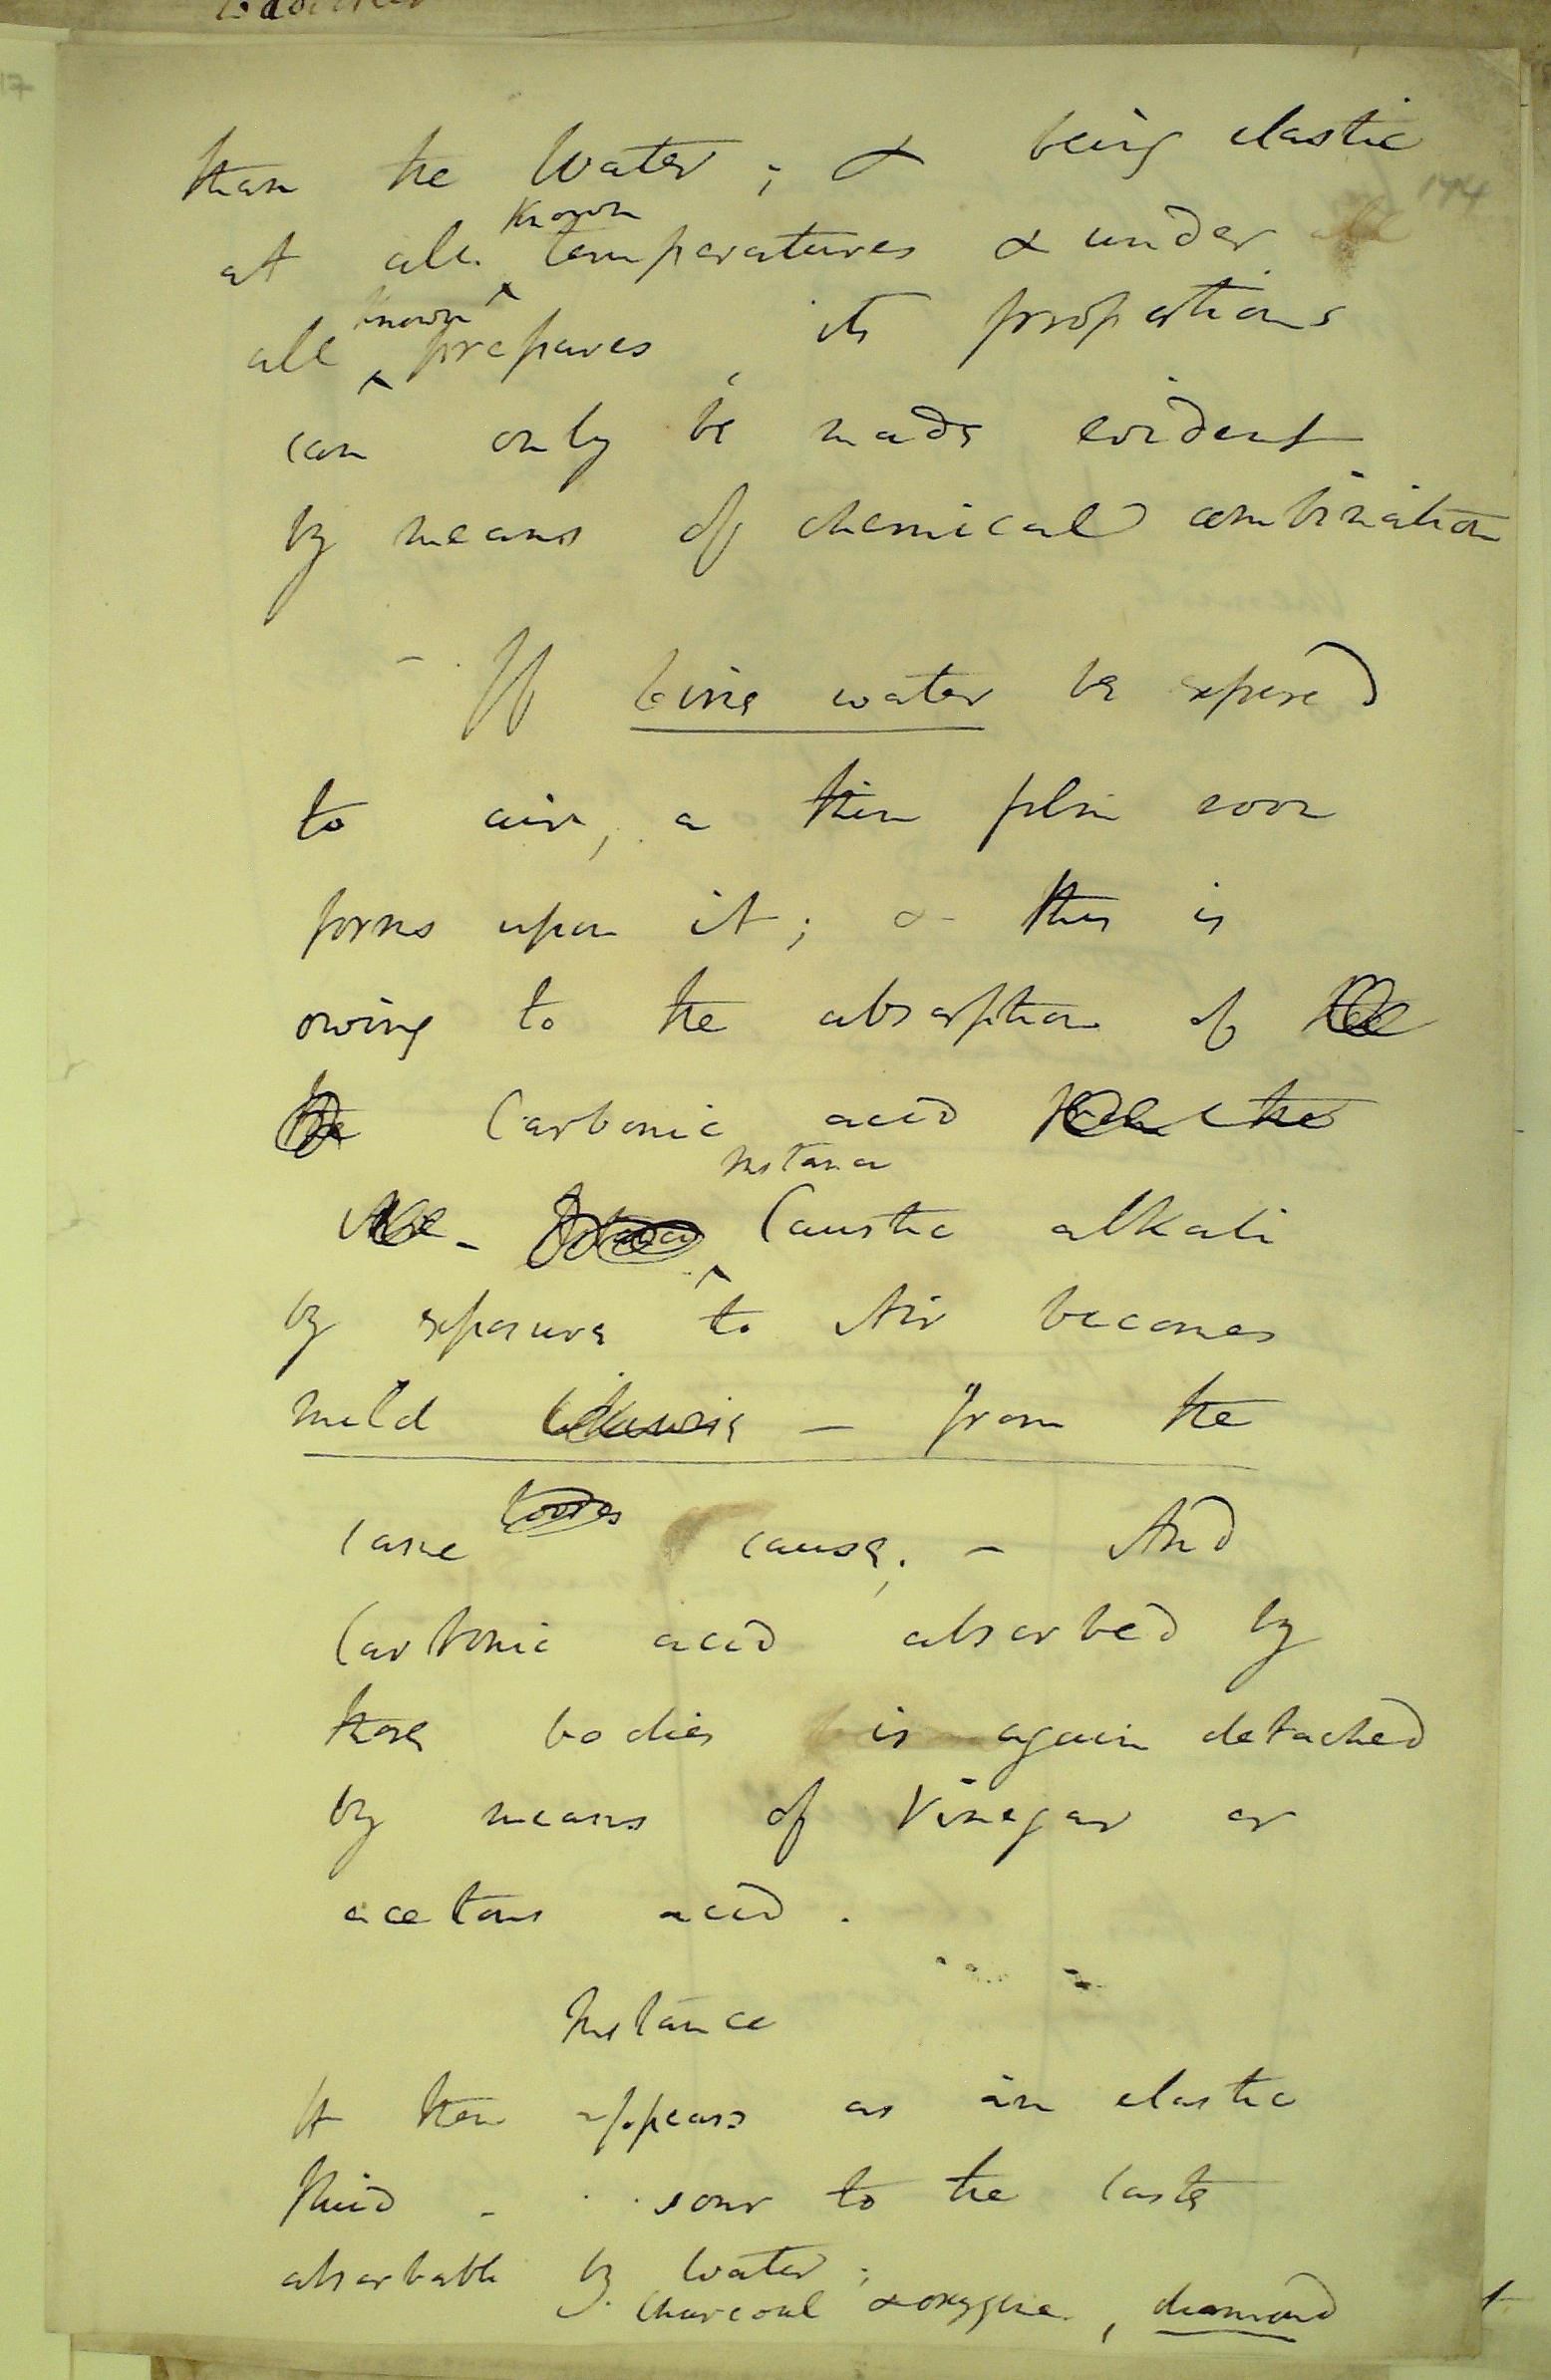 than the Water; & being elastic
174
at all known temperatures & under
all known presures, its proportions
can only be made evident
by means of chemical combination
- If lime water be exposed
to air, a thin film soon
forms upon it; & this is
owing to the absorption of the
the Carbonic acid from the
Air - Instance Caustic alkali
by exposure to Air becomes
mild likewise - from the
same cause; - And
Carbonic acid absorbed by
those bodies is again detached
by means of Vinegar or
acetous acid.
Instance
It then appears as an elastic
fluid - sour to the taste
absorbable by Water;
charcoal & oxygene, diamond